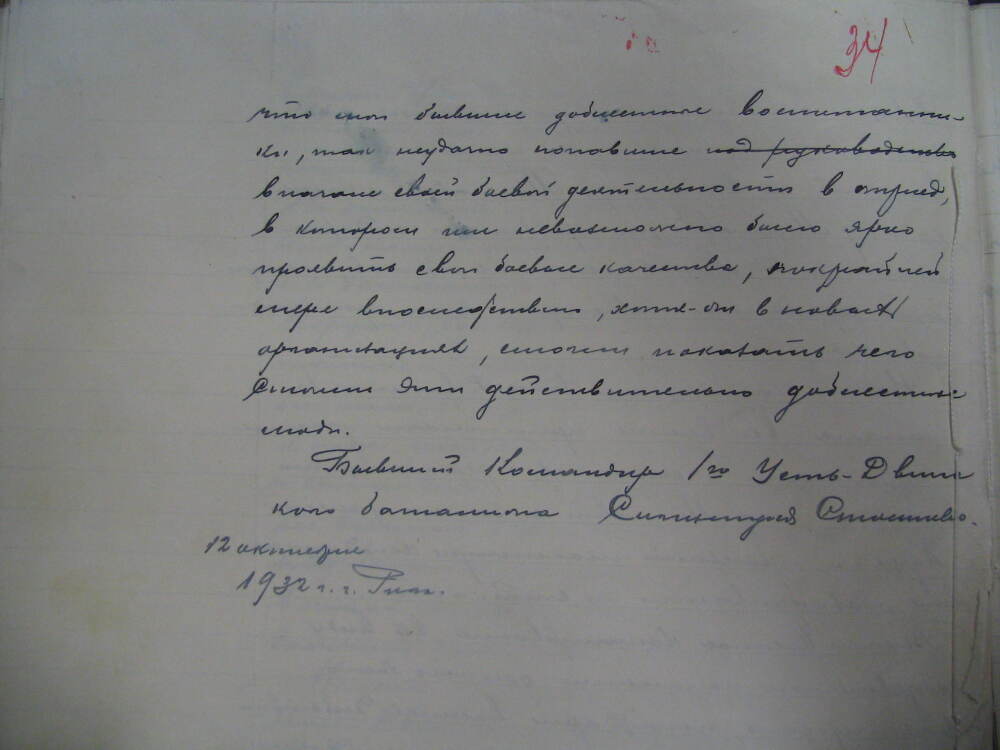 34
что мои бывшие доблестные воспитанни-
ки, так неудачно попавшие под руководство
в начале своей боевой деятельности в отряд,
в котором им невозможно было ярко
проявить свои боевые качества, покрайней
мере впоследствии, хотя-бы в новых
организациях, смогли показать чего
стоили эти действительно доблестные
люди.
Бывший Командир 1го Усть-Двин
кого баталиона
12 октября
1932 г. г. Рига.